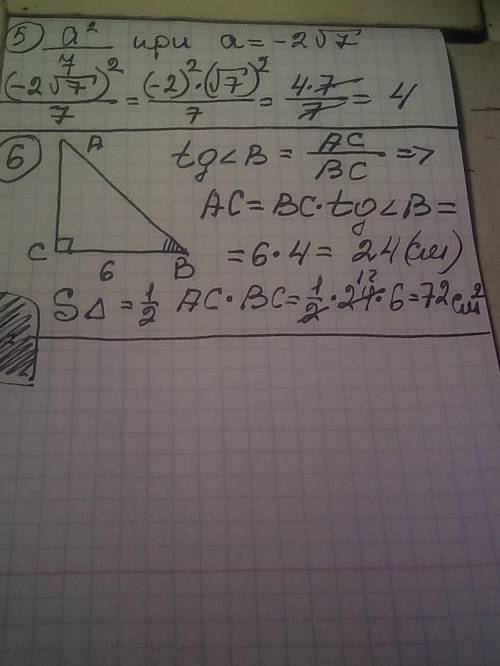 5) a²/7 при a = -2√7
(-2√7)²/7 = (-2)²·(√7)²/7 = 4·7/7 = 4
6) A tg∠B = AC/BC =>
AC = BC·tg∠B =
C 6 B = 6·4 = 24 (см)
S△ = 1/2 AC·BC = 1/2·24·6 = 72 см²
12